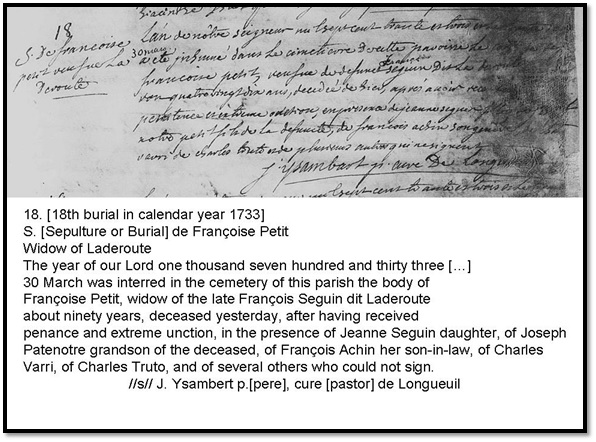 18
S. de francoise
petit veufve La
Deroute
L'an de nôtre seigneur mil sept cent trente et trois
30 mars a été inhumé dans le cimetiere de cette paroisse le
francoise petit, veufve de defunct francois seguin dit La
ron quatre vingt dix ans, decedée de hier, aprés avoir
penitence et extreme onction, en presence de jeanne seguin
notre petit fils de la defuncte, de francois achin son gendre
varri de charles et de plusieurs autres qui n'ont signé
J Ysambart p. curé De Longueuil
mil sept cent trente et trois
18. [18th burial in calendar year 1733]
S. [Sepulture or Burial] de Françoise Petit
Widow of Laderoute
The year of our Lord one thousand seven hundred and thirty three […]
30 March was interred in the cemetery of this parish the body of
Françoise Petit, widow of the late François Seguin dit Laderoute
about ninety years, deceased yesterday, after having received
penance and extreme unction, in the presence of Jeanne Seguin daughter, of Joseph
Patenotre grandson of the deceased, of François Achin her son-in-law, of Charles
Varri, of Charles Truto, and of several others who could not sign.
//s// J. Ysambert p.[pere], cure [pastor] de Longueuil